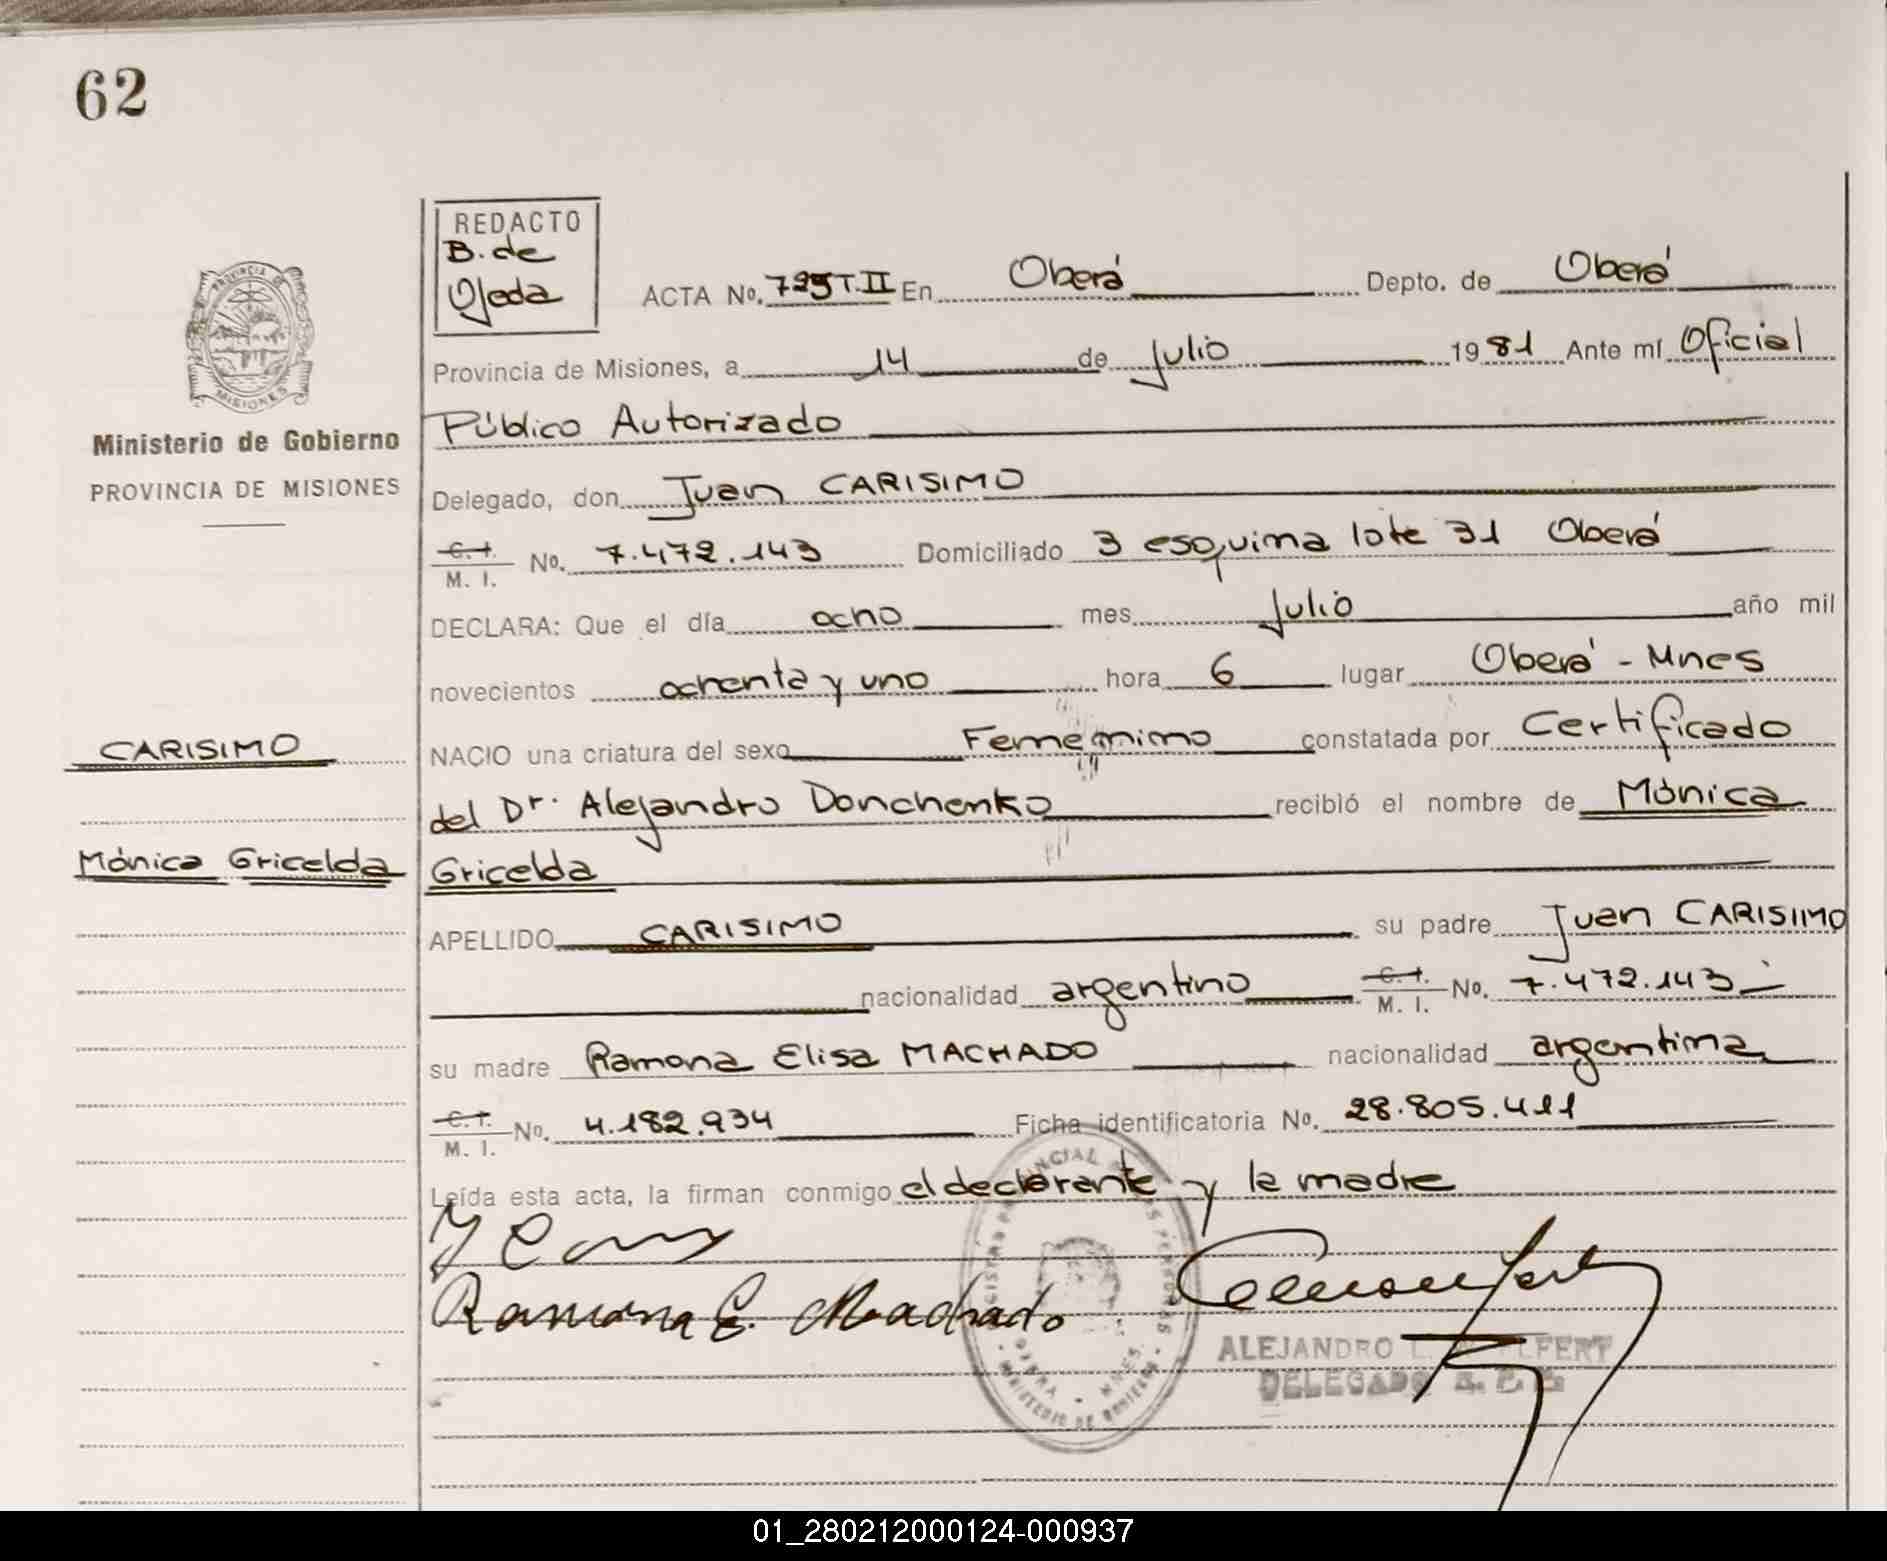 62
REDACTO
B. de
Ojeda
ACTA No. 725 T. II En Oberá Depto. de Oberá
Provincia de Misiones, a 14 de Julio 1981 Ante mí Oficial
Público Autorizado
Delegado, don Juan CARISIMO
C. I. / M. I. No. 7.472.143 Domiciliado 3 esquina lote 31 Oberá
DECLARA: Que el día ocho mes Julio año mil
novecientos ochenta y uno hora 6 lugar Oberá - Mnes
NACIO una criatura del sexo Femenino constatada por Certificado
del Dr. Alejandro Donchenko recibió el nombre de Mónica
Gricelda
APELLIDO CARISIMO su padre Juan CARISIMO
nacionalidad argentino C. I. / M. I. No. 7.472.143
su madre Ramona Elisa MACHADO nacionalidad argentina
C. I. / M. I. No. 4.182.934 Ficha identificatoria No. 28.805.411
Leída esta acta, la firman conmigo el declarante y la madre
Ramona E. Machado
ALEJANDRO
DELEGADO
PROVINCIA DE
MISIONES
Ministerio de Gobierno
PROVINCIA DE MISIONES
CARISIMO
Mónica Gricelda
01_280212000124-000937